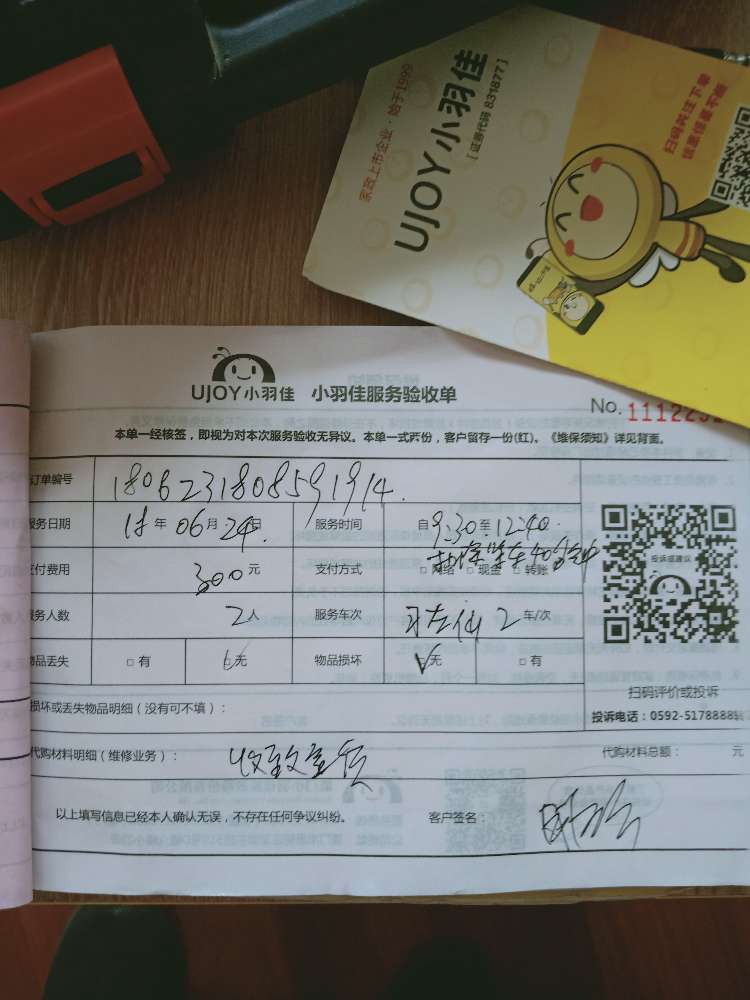 家政上市企业·始于1999
UJOY小羽佳
[证券代码 831877]
扫码关注下单
优惠信息不断
UJOY小羽佳 小羽佳服务验收单
No. 1112251
本单一经核签，即视为对本次服务验收无异议。本单一式两份，客户留存一份(红)。《维保须知》详见背面。
订单编号 1806231808591914.
服务日期 18年06月24日 服务时间 自9:30至12:40.
支付费用 300元 支付方式 □网络 □现金 □转账
服务人数 2人 服务车次 2车/次
物品丢失 □有 □无 物品损坏 □无 □有
投诉或建议
扫码评价或投诉
投诉电话：0592-5178888转
损坏或丢失物品明细（没有可不填）：
代购材料明细（维修业务）： 代购材料总额： 元
以上填写信息已经本人确认无误，不存在任何争议纠纷。 客户签名：